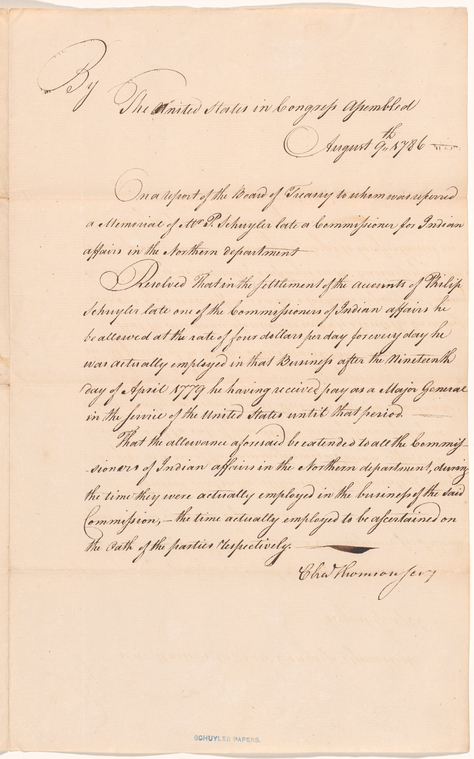 By
The United States in Congress Assembled
August 9th. 1786
On a report of the Board of Treasury to whom was referred
a Memorial of Mr P. Schuyler late a Commissioner for Indian
affairs in the Northern department
Resolved That in the settlement of the accounts of Philip
Schuyler late one of the Commissioners of Indian affairs he
be allowed at the rate of four dollars per day for every day he
was actually employed in that Business after the Nineteenth
day of April 1779 he having received pay as a Major General
in the service of the United States until that period
That the allowance aforesaid be extended to all the Commis-
sioners of Indian affairs in the Northern department, during
the time they were actually employed in the business of the said
Commission, — the time actually employed to be ascertained on
the Oath of the parties respectively.
Chas Thomson Secy
SCHUYLER PAPERS.